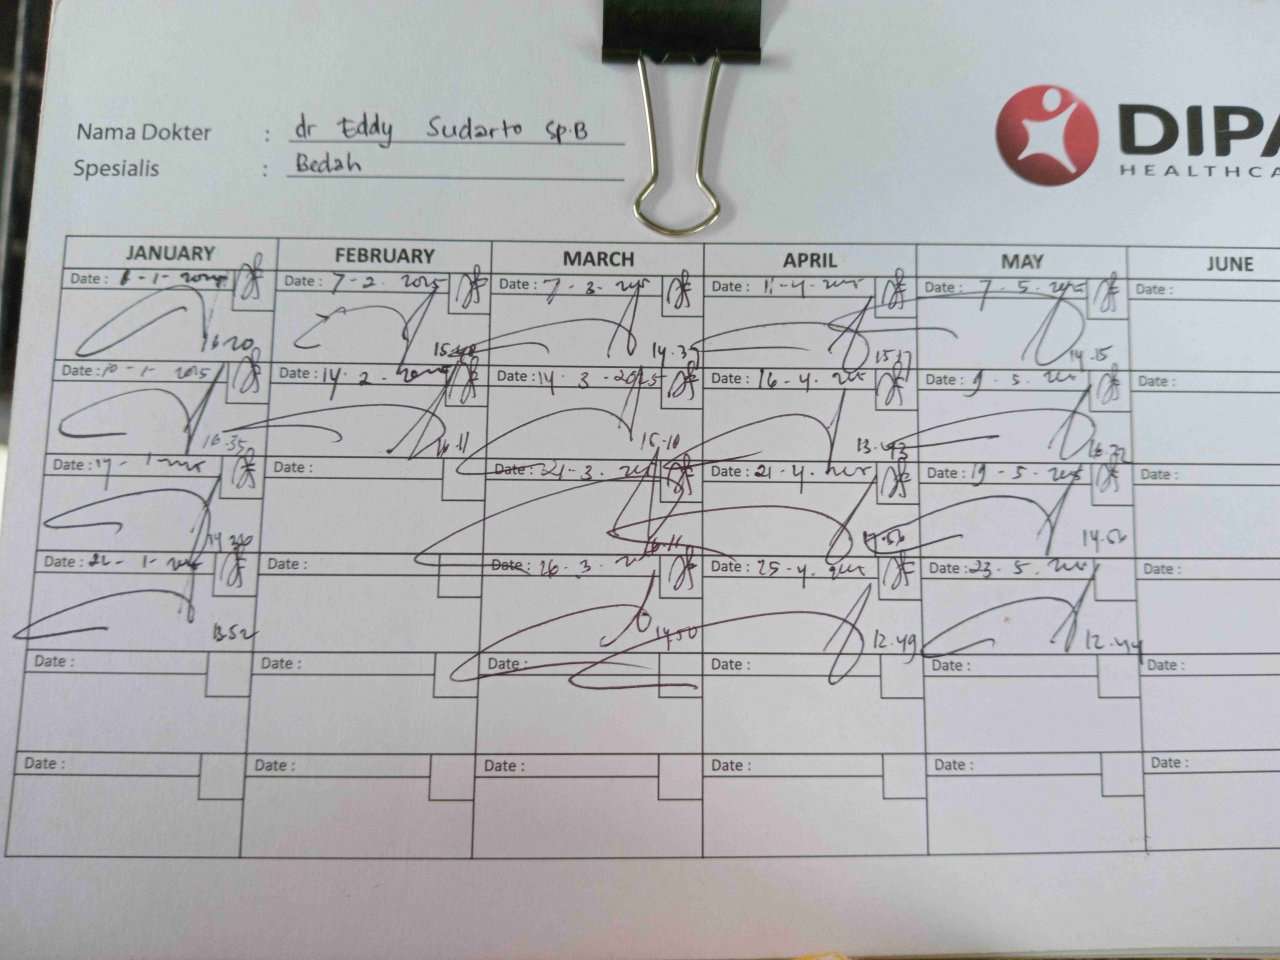 Nama Dokter : dr Eddy Sudarto Sp.B
Spesialis : Bedah
DIPA
HEALTHCA
JANUARY FEBRUARY MARCH APRIL MAY JUNE
Date : 8-1-2025 Date : 7-2.2025 Date : 7-3.2025 Date : 11-4.2025 Date : 7.5.2025 Date :
16.20 15.48 14.37 15.17 14.15
Date : 10-1-2025 Date : 14.2.2025 Date : 14.3-2025 Date : 16-4.2025 Date : 9.5.2025 Date :
16.35 16.11 15.10 13.43
Date : 17-1-2025 Date : Date : 21-3.2025 Date : 21-4.2025 Date : 19-5.2025 Date :
16.11 14.56
Date : 22-1-2025 Date : Date : 26.3.2025 Date : 25-4.2025 Date : 23.5.2025 Date :
13.52 14.50 12.49 12.44
Date : Date : Date : Date : Date :
Date : Date : Date : Date : Date : Date :